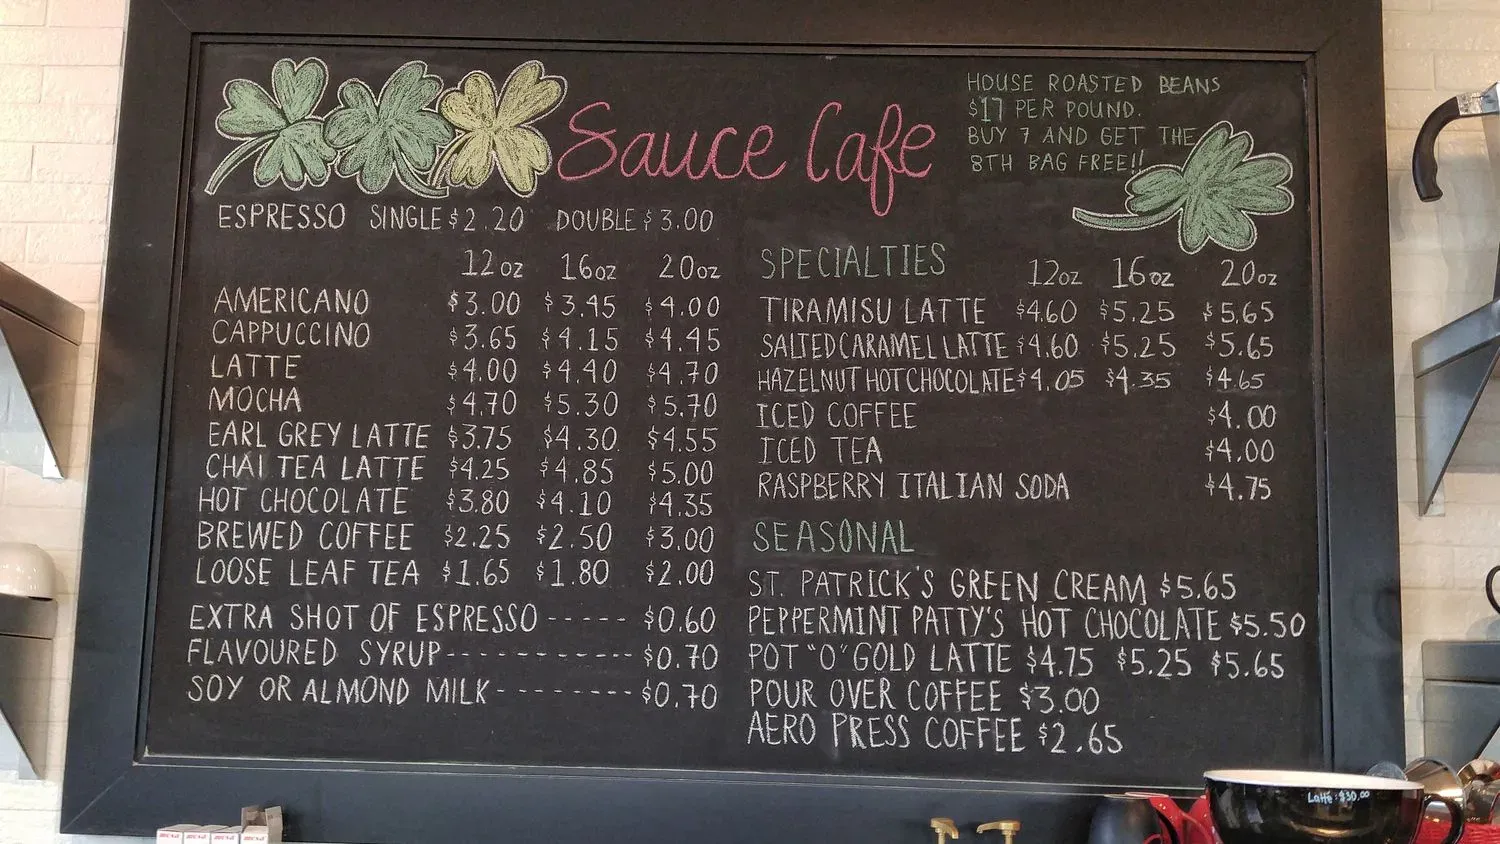 Sauce Cafe
HOUSE ROASTED BEANS
$17 PER POUND.
BUY 7 AND GET THE
8TH BAG FREE!!
ESPRESSO SINGLE $2.20 DOUBLE $3.00
12oz 16oz 20oz
AMERICANO $3.00 $3.45 $4.00
CAPPUCCINO $3.65 $4.15 $4.45
LATTE $4.00 $4.40 $4.70
MOCHA $4.70 $5.30 $5.70
EARL GREY LATTE $3.75 $4.30 $4.55
CHAI TEA LATTE $4.25 $4.85 $5.00
HOT CHOCOLATE $3.80 $4.10 $4.35
BREWED COFFEE $2.25 $2.50 $3.00
LOOSE LEAF TEA $1.65 $1.80 $2.00
EXTRA SHOT OF ESPRESSO ----- $0.60
FLAVOURED SYRUP ------------ $0.70
SOY OR ALMOND MILK -------- $0.70
SPECIALTIES 12oz 16oz 20oz
TIRAMISU LATTE $4.60 $5.25 $5.65
SALTED CARAMEL LATTE $4.60 $5.25 $5.65
HAZELNUT HOT CHOCOLATE $4.05 $4.35 $4.65
ICED COFFEE $4.00
ICED TEA $4.00
RASPBERRY ITALIAN SODA $4.75
SEASONAL
ST. PATRICK'S GREEN CREAM $5.65
PEPPERMINT PATTY'S HOT CHOCOLATE $5.50
POT "O" GOLD LATTE $4.75 $5.25 $5.65
POUR OVER COFFEE $3.00
AERO PRESS COFFEE $2.65
Latte: $30.00